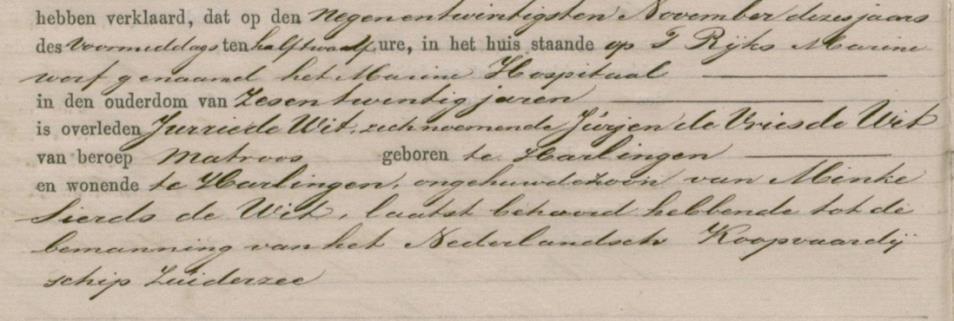 hebben verklaard, dat op den negenentwintigsten November dezes jaars
des voormiddags ten half twaalf ure, in het huis staande op 's Rijks Marine
werf genaamd het Marine Hospitaal
in den ouderdom van zesentwintig jaren
is overleden Jurrie de Wit, zich noemende Jürjen de Vries de Wit
van beroep matroos geboren te Harlingen
en wonende te Harlingen, ongehuwde zoon van Minke
Sierds de Wit, laatst behoord hebbende tot de
bemanning van het Nederlandsch Koopvaardij
schip Zuiderzee